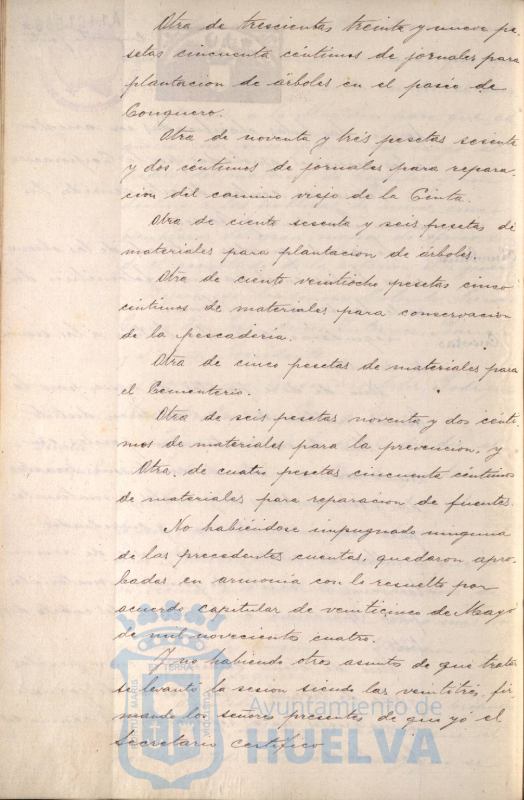 Otra de trescientas treinta y nueve pe-
setas cincuenta céntimos de jornales para
plantacion de árboles en el paseo de
Conquero.
Otra de noventa y tres pesetas sesenta
y dos céntimos de jornales para repara-
cion del camino viejo de la Cinta.
Otra de ciento sesenta y seis pesetas de
materiales para plantacion de árboles.
Otra de ciento veintiocho pesetas cinco
céntimos de materiales para conservacion
de la pescadería.
Otra de cinco pesetas de materiales para
el Cementerio.
Otra de seis pesetas noventa y dos cénti-
mos de materiales para la prevencion, y
Otra de cuatro pesetas cincuenta céntimos
de materiales para reparacion de fuentes.
No habiéndose impugnado ninguna
de las precedentes cuentas, quedaron apro-
badas en armonía con lo resuelto por
acuerdo capitular de veinticinco de Mayo
de mil novecientos cuatro.
Y no habiendo otros asuntos de que tratar
se levantó la sesion siendo las veintitres, fir-
mando los señores presentes de que yo el
Secretario certifico
Ayuntamiento de
HUELVA